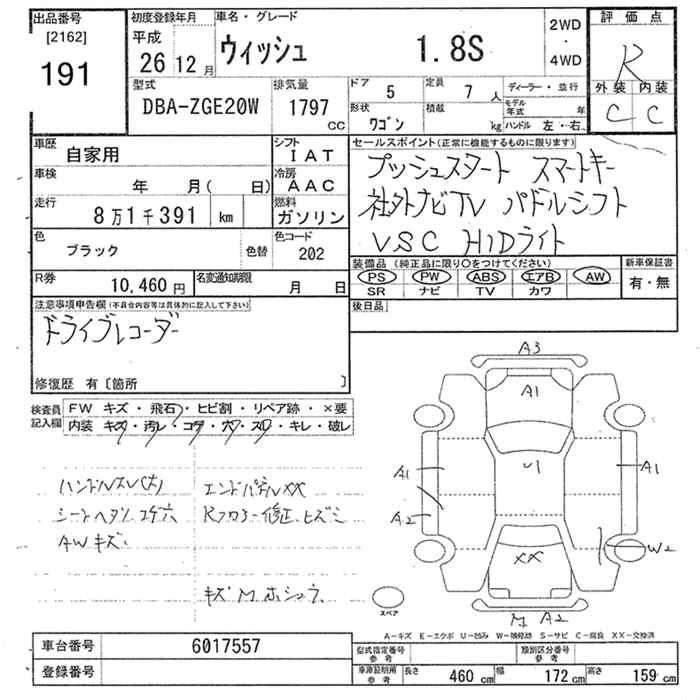 出品番号
[2162]
191
初度登録年月
平成
26年12月
車名・グレード
ウィッシュ 1.8S
2WD
・
4WD
評価点
R
外装 内装
C C
型式
DBA-ZGE20W
排気量
1797
CC
ドア
5
定員
7人
形状
ワゴン
積載
kg
ディーラー・並行
モデル年式 年
ハンドル 左・右
車歴
自家用
シフト
IAT
車検
年 月( 日)
冷房
AAC
走行
8万1千391 km
燃料
ガソリン
色
ブラック
色替
色コード
202
R券
10,460円
名変通知期限
月 日
セールスポイント(正常に機能するものに限ります)
プッシュスタート スマートキー
社外ナビTV パドルシフト
VSC HIDライト
装備品(純正品に限り○をつけてください)
PS PW ABS エアB AW
SR ナビ TV カワ
新車保証書
有・無
後日品
注意事項申告欄(不具合内容等は具体的に記入して下さい)
ドライブレコーダー
修復歴 有〔箇所 〕
検査員記入欄
FW キズ・飛石・ヒビ割・リペア跡・×要
内装 キズ・汚レ・コゲ・穴・スレ・キレ・破レ
ハンドルスレ(大)
シートヘタリ コゲ穴
AWキズ
エンドパネルXX
Rフロアー修正、ヒズミ
キズ M ホシュウ
A3
A1
A1
A1
A2
XX
W2
A2
スペア
A-キズ E-エクボ U-凹み W-補修跡 S-サビ C-腐食 XX-交換済
車台番号
6017557
登録番号
型式指定番号
参考
類別区分番号
参考
車庫証明用
参考
長さ 460 cm
幅 172 cm
高さ 159 cm